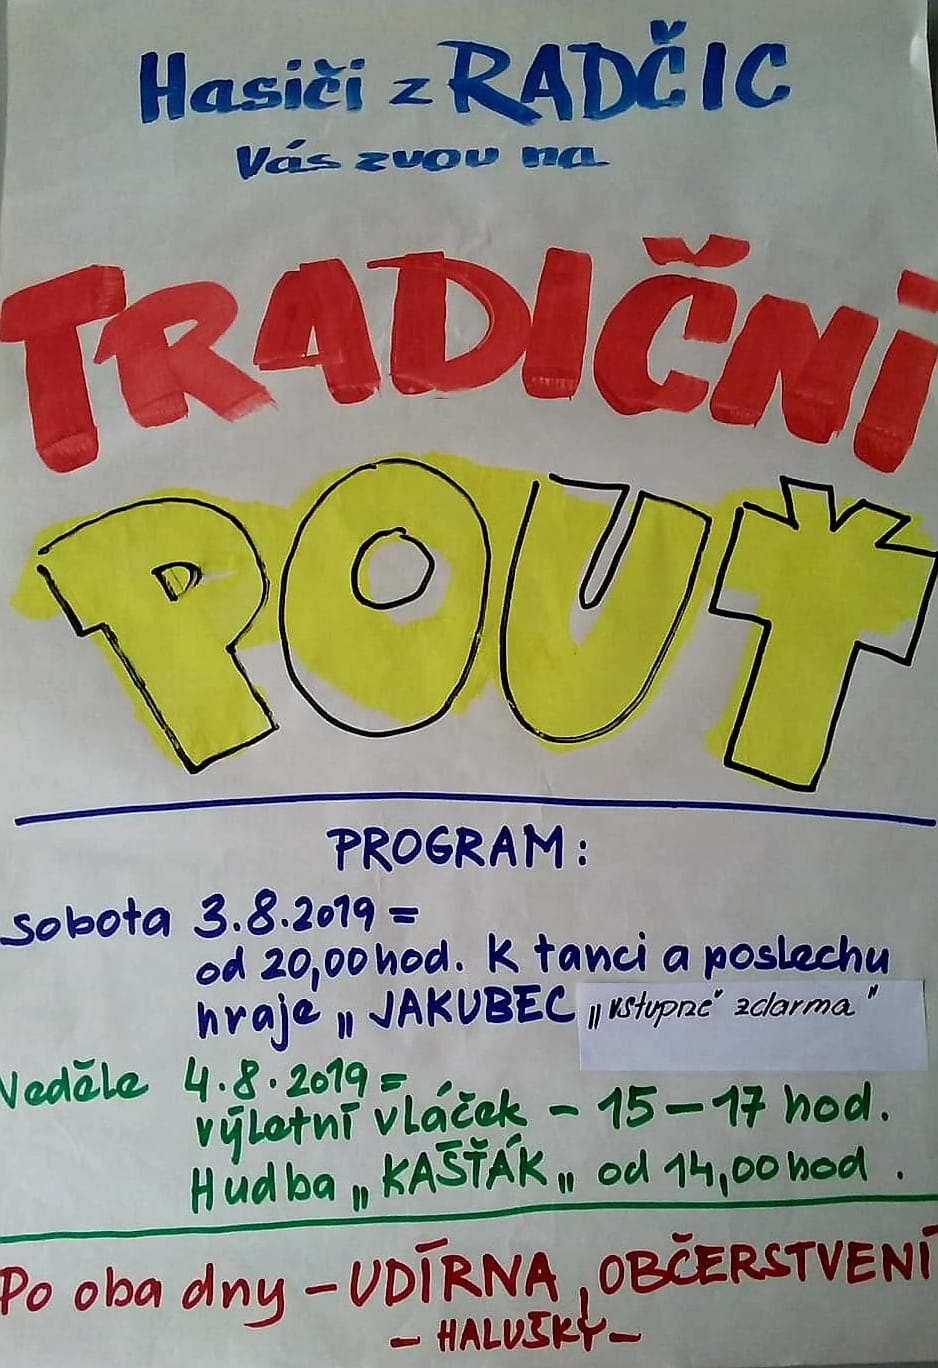 Hasiči z RADČIC
Vás zvou na
TRADIČNí
POUŤ
PROGRAM:
sobota 3.8.2019 =
od 20,00 hod. K tanci a poslechu
hraje „ JAKUBEC „ vstupné zdarma "
Neděle 4.8.2019 =
výletní vláček – 15 – 17 hod.
Hudba „ KAŠŤÁK „ od 14,00 hod .
Po oba dny – UDÍRNA, OBČERSTVENÍ
– HALUŠKY –